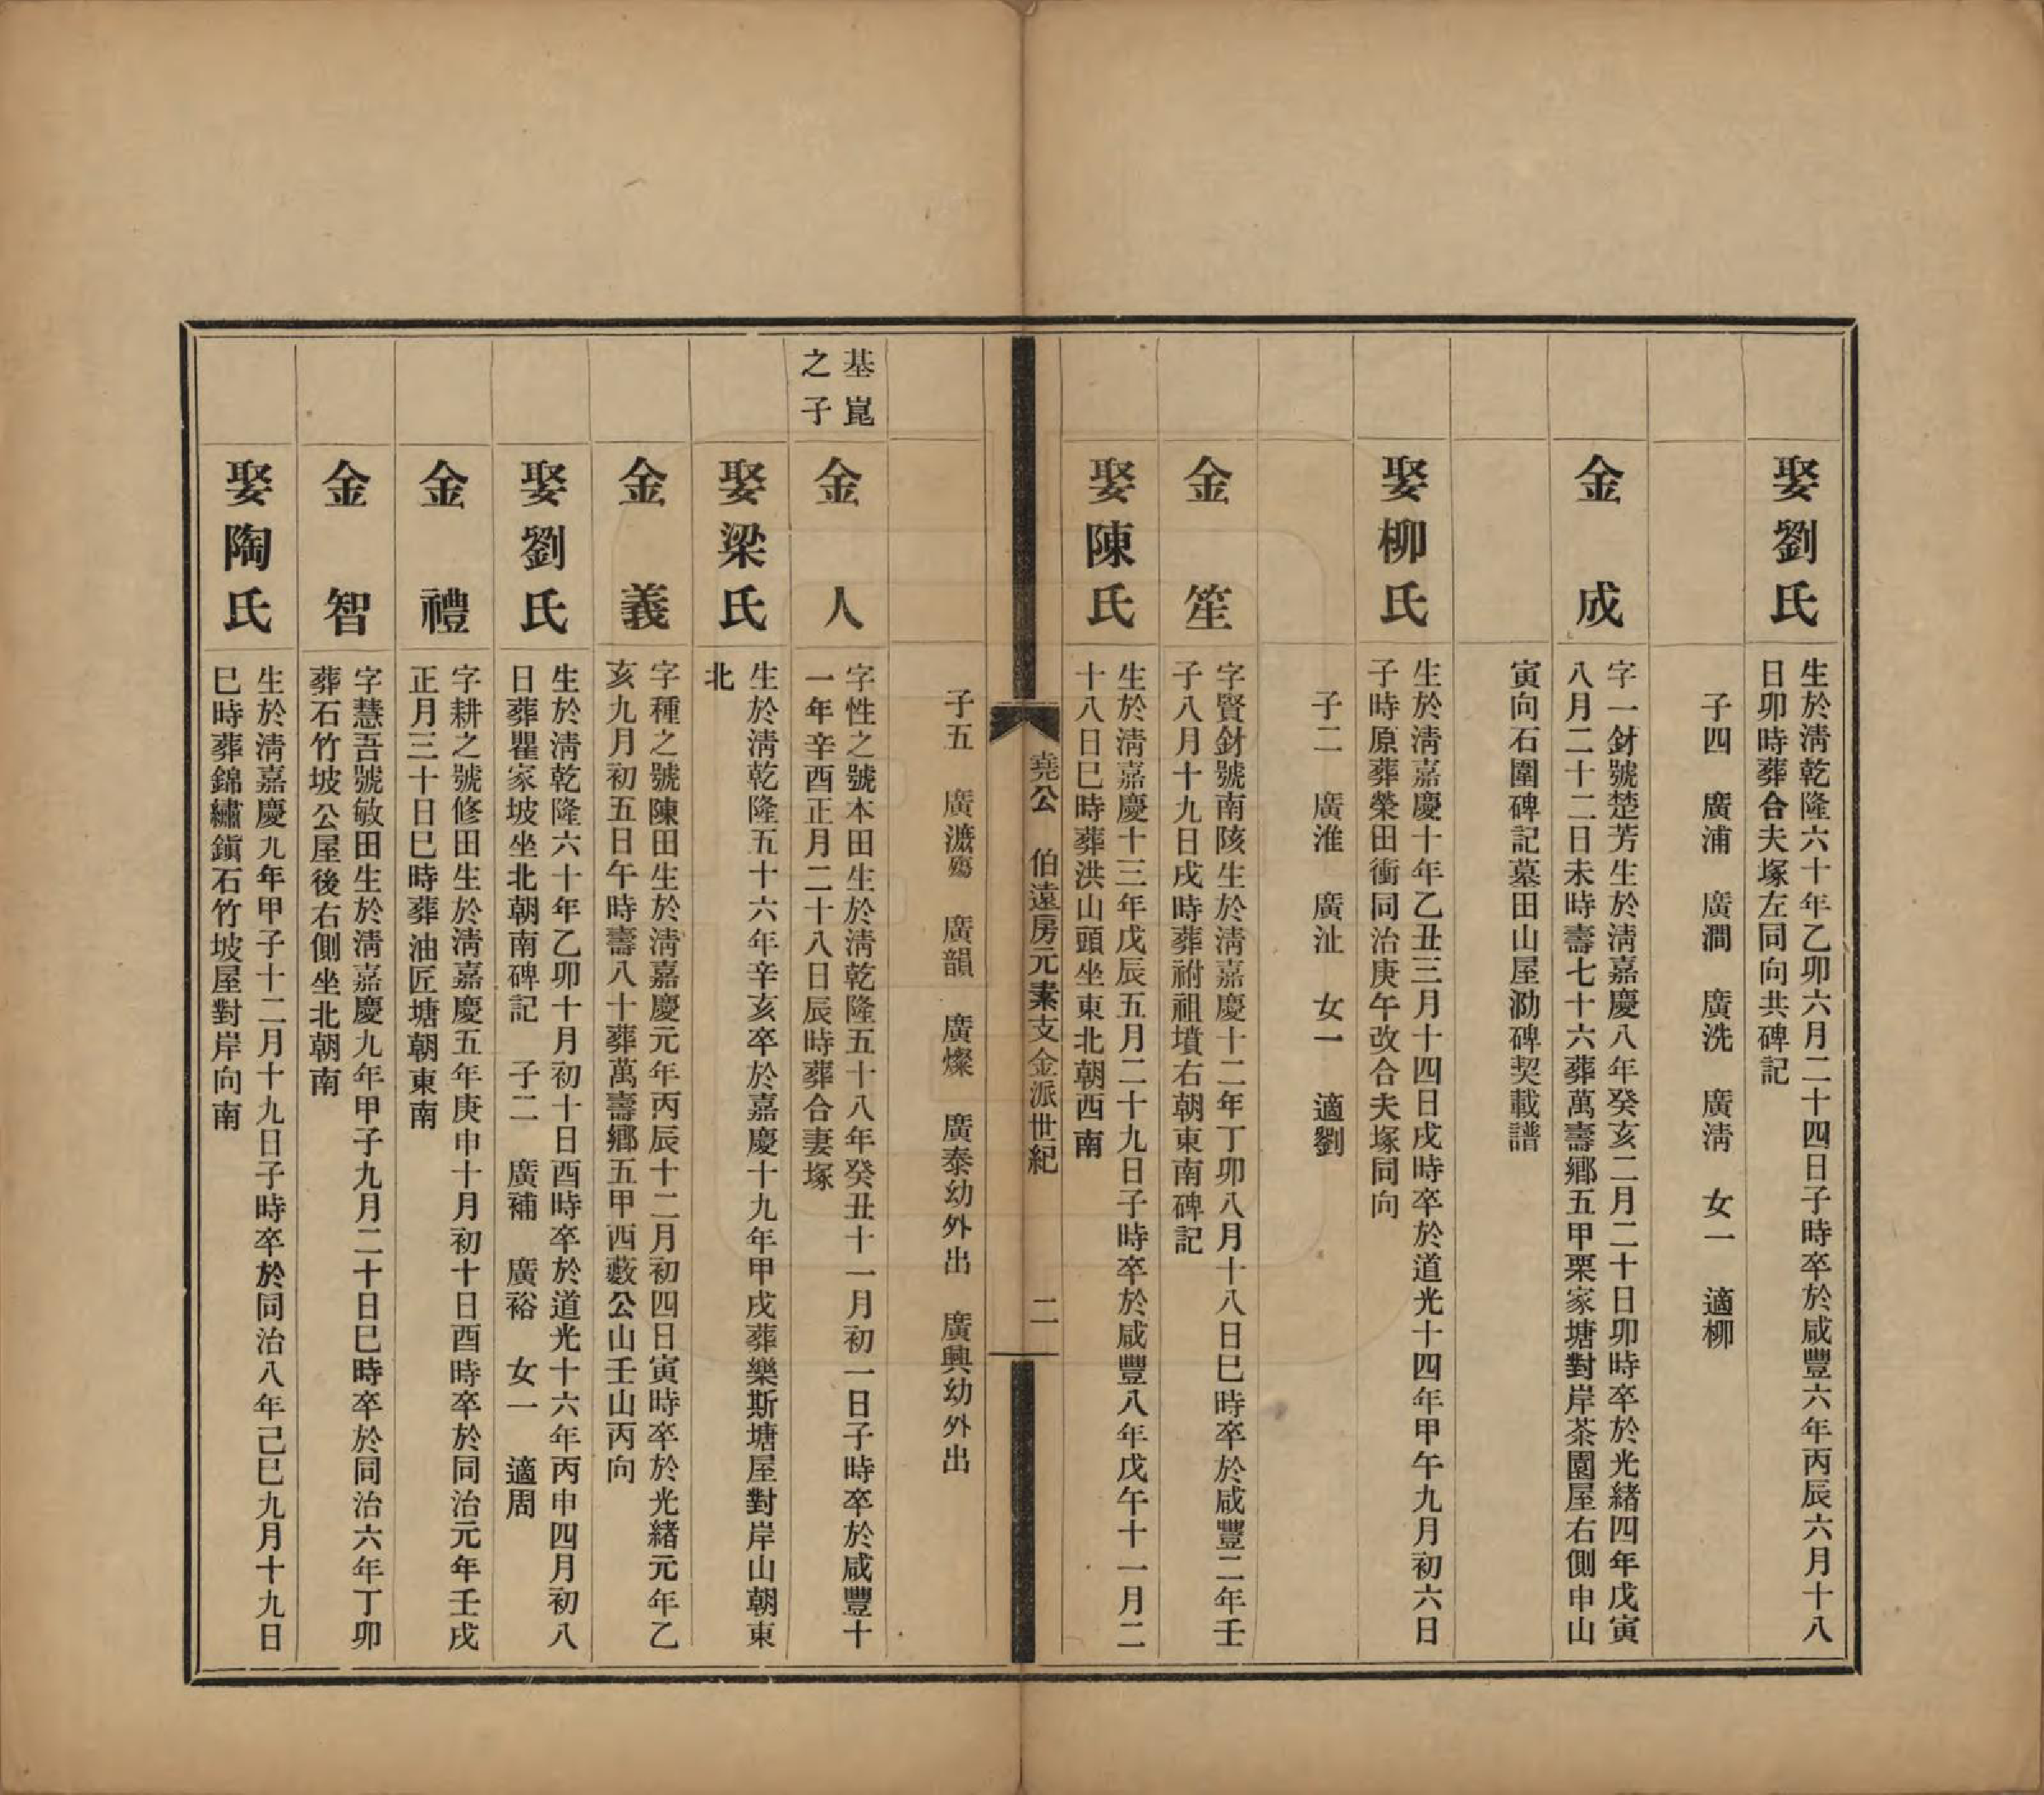 娶劉氏
生於淸乾隆六十年乙卯六月二十四日子時卒於咸豐六年丙辰六月十八
日卯時葬合夫塚左同向共碑記
子四　廣浦　廣澗　廣洗　廣淸　女一　適柳
金　成
字一釮號楚芳生於淸嘉慶八年癸亥二月二十日卯時卒於光緒四年戊寅
八月二十二日未時壽七十六葬萬壽鄉五甲栗家塘對岸茶園屋右側申山
寅向石圍碑記墓田山屋泐碑契載譜
娶柳氏
生於淸嘉慶十年乙丑三月十四日戌時卒於道光十四年甲午九月初六日
子時原葬榮田衝同治庚午改合夫塚同向
子二　廣淮　廣沚　女一　適劉
金　笙
字賢釮號南陔生於淸嘉慶十二年丁卯八月十八日巳時卒於咸豐二年壬
子八月十九日戌時葬祔祖墳右朝東南碑記
娶陳氏
生於淸嘉慶十三年戊辰五月二十九日子時卒於咸豐八年戊午十一月二
十八日巳時葬洪山頭坐東北朝西南
堯公　伯遠房元素支金派世紀　二
子五　廣瀌殤　廣韻　廣燦　廣泰幼外出　廣興幼外出
基崑
之子
金　人
字性之號本田生於淸乾隆五十八年癸丑十一月初一日子時卒於咸豐十
一年辛酉正月二十八日辰時葬合妻塚
娶梁氏
生於淸乾隆五十六年辛亥卒於嘉慶十九年甲戌葬樂斯塘屋對岸山朝東
北
金　義
字種之號陳田生於淸嘉慶元年丙辰十二月初四日寅時卒於光緒元年乙
亥九月初五日午時壽八十葬萬壽鄉五甲西藪公山壬山丙向
娶劉氏
生於淸乾隆六十年乙卯十月初十日酉時卒於道光十六年丙申四月初八
日葬瞿家坡坐北朝南碑記　子二　廣補　廣裕　女一　適周
金　禮
字耕之號修田生於淸嘉慶五年庚申十月初十日酉時卒於同治元年壬戌
正月三十日巳時葬油匠塘朝東南
金　智
字慧吾號敏田生於淸嘉慶九年甲子九月二十日巳時卒於同治六年丁卯
葬石竹坡公屋後右側坐北朝南
娶陶氏
生於淸嘉慶九年甲子十二月十九日子時卒於同治八年己巳九月十九日
巳時葬錦繡鎭石竹坡屋對岸向南